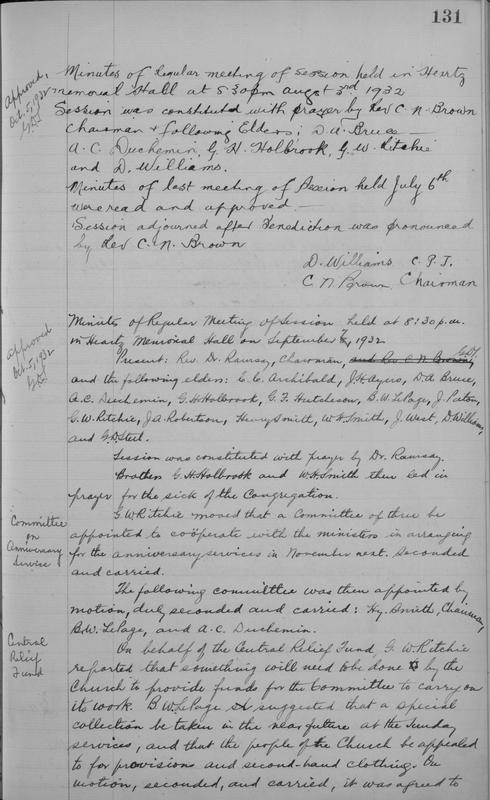 131
Approved,
Oct. 5, 1932
Minutes of Regular meeting of Session held in Heartz
Memorial Hall at 8 30 pm August 3rd 1932
Session was constituted with prayer by Rev C. N. Brown
Chairman & following Elders; D. A. Bruce —
A. C. Duchemin, G. H. Holbrook, G. W. Ritchie
and D. Williams.
Minutes of last meeting of Session held July 6th
were read and approved —
Session adjourned after Benediction was pronounced
by Rev C. N. Brown
D. Williams C. P. T.
C. N Brown Chairman
approved
Oct. 5, 1932
Minutes of Regular Meeting of Session held at 8:30 p.m.
in Heartz Memorial Hall on September 7, 1932
Present: Rev. Dr. Ramsay, Chairman, and Rev C N Brown,
and the following elders: C. C. Archibald, J. H. Ayers, D. A. Bruce,
A. C. Duchemin, G. H. Holbrook, G. F. Hutcheson, B. W. LePage, J. Paton,
G. W. Ritchie, J. A. Robertson, Henry Smith, W. H. Smith, J. West, D. Williams,
and G. D. Steel.
Session was constituted with prayer by Dr. Ramsay.
Brothers G. H. Holbrook and W. H. Smith then led in
prayer for the sick of the Congregation.
Committee
on
Anniversary
Service
G. W. Ritchie moved that a Committee of three be
appointed to coöperate with the ministers in arranging
for the anniversary services in November next. Seconded
and carried.
The following committee was then appointed by
motion, duly seconded and carried: Hy. Smith, Chairman,
B. W. LePage, and A. C. Duchemin.
Central
Relief
Fund
On behalf of the Central Relief Fund, G. W. Ritchie
reported that something will need to be done by the
Church to provide funds for the Committee to carry on
its work. B. W. LePage suggested that a special
collection be taken in the near future at the Sunday
services, and that the people of the Church be appealed
to for provisions and second-hand clothing. On
motion, seconded, and carried, it was agreed to